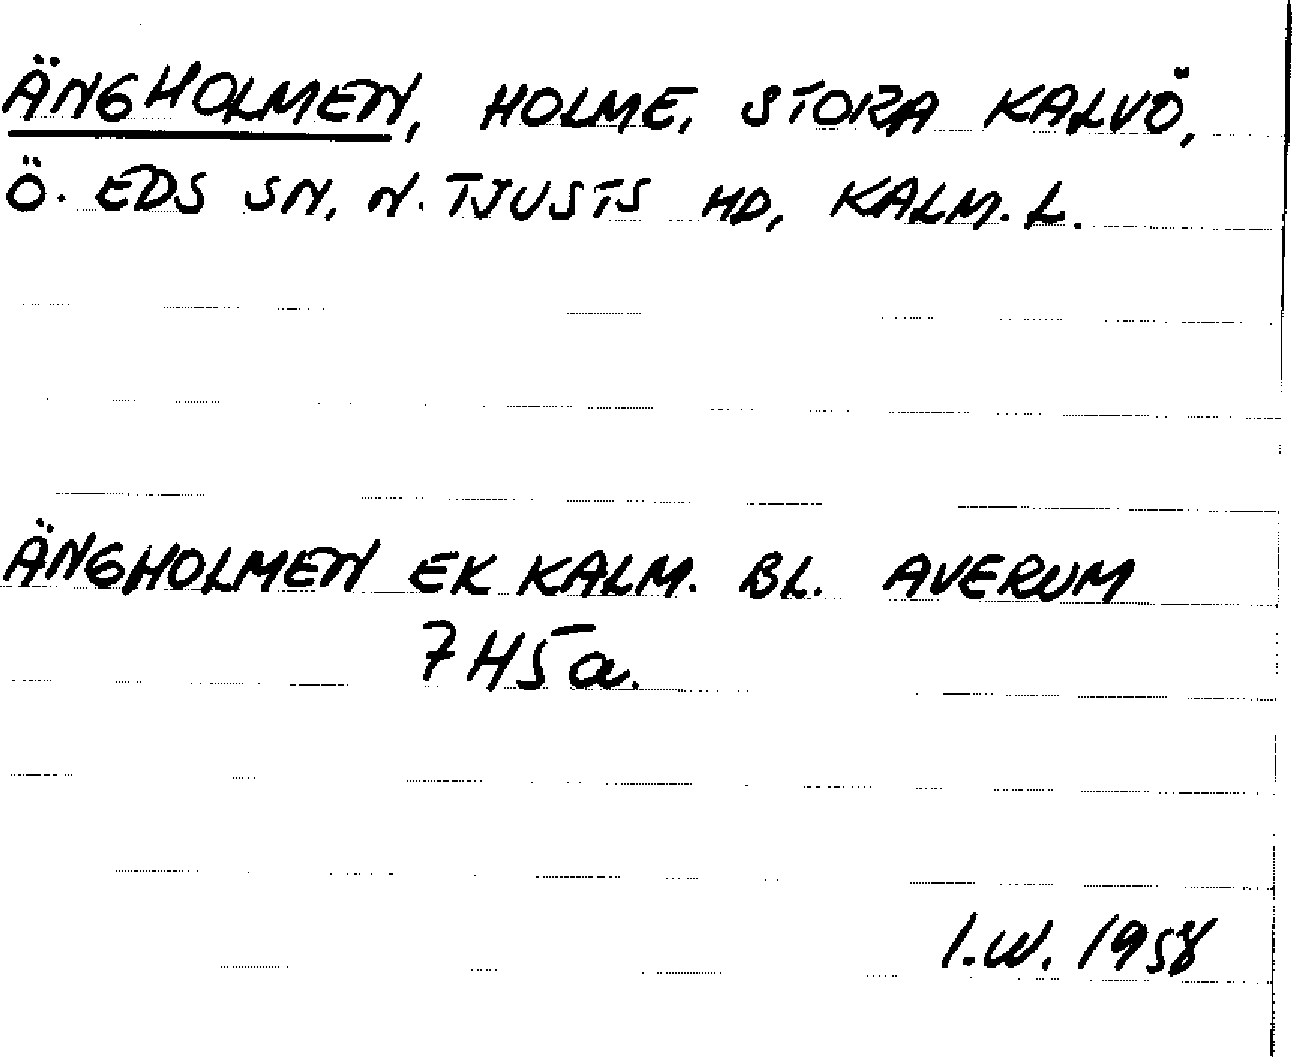 ÄNGHOLMEN, HOLME, STORA KALVÖ,
Ö. EDS SN, N. TJUSTS HD, KALM. L.
ÄNGHOLMEN EK KALM. BL. AVERUM
7H5a.
I.W. 1958